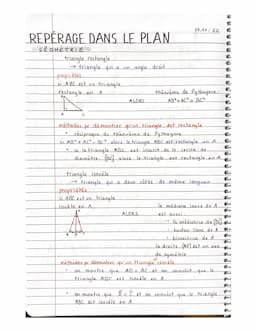 17.11.22
REPÉRAGE DANS LE PLAN
GÉOMÉTRIE
triangle rectangle
→ triangle qui a un angle droit
propriétés
si ABC est un triangle
rectangle en A
ALORS
théorème de Pythagore
AB² + AC² = BC²
méthodes pr démontrer qu'un triangle est rectangle
réciproque du théorème de Pythagore
si AB² + AC² = BC² alors le triangle ABC est rectangle en A
si le triangle ABC est inscrit ds le cercle de
diamètre [BC] alors le triangle est rectangle en A
triangle isocèle
→ triangle qui a deux côtés de même longueur
propriétés
si ABC est un triangle
isocèle en A
ALORS
la médiane issue de A
est aussi
la médiatrice de [BC]
hauteur issue de A
bissectrice de A
la droite est un axe
de symétrie
méthodes pr démontrer qu'un triangle isocèle
on montre que AB = AC et on conclut que le
triangle ABC est isocèle en A
on montre que B = C et on conclut que le triangle
ABC est isocèle en A